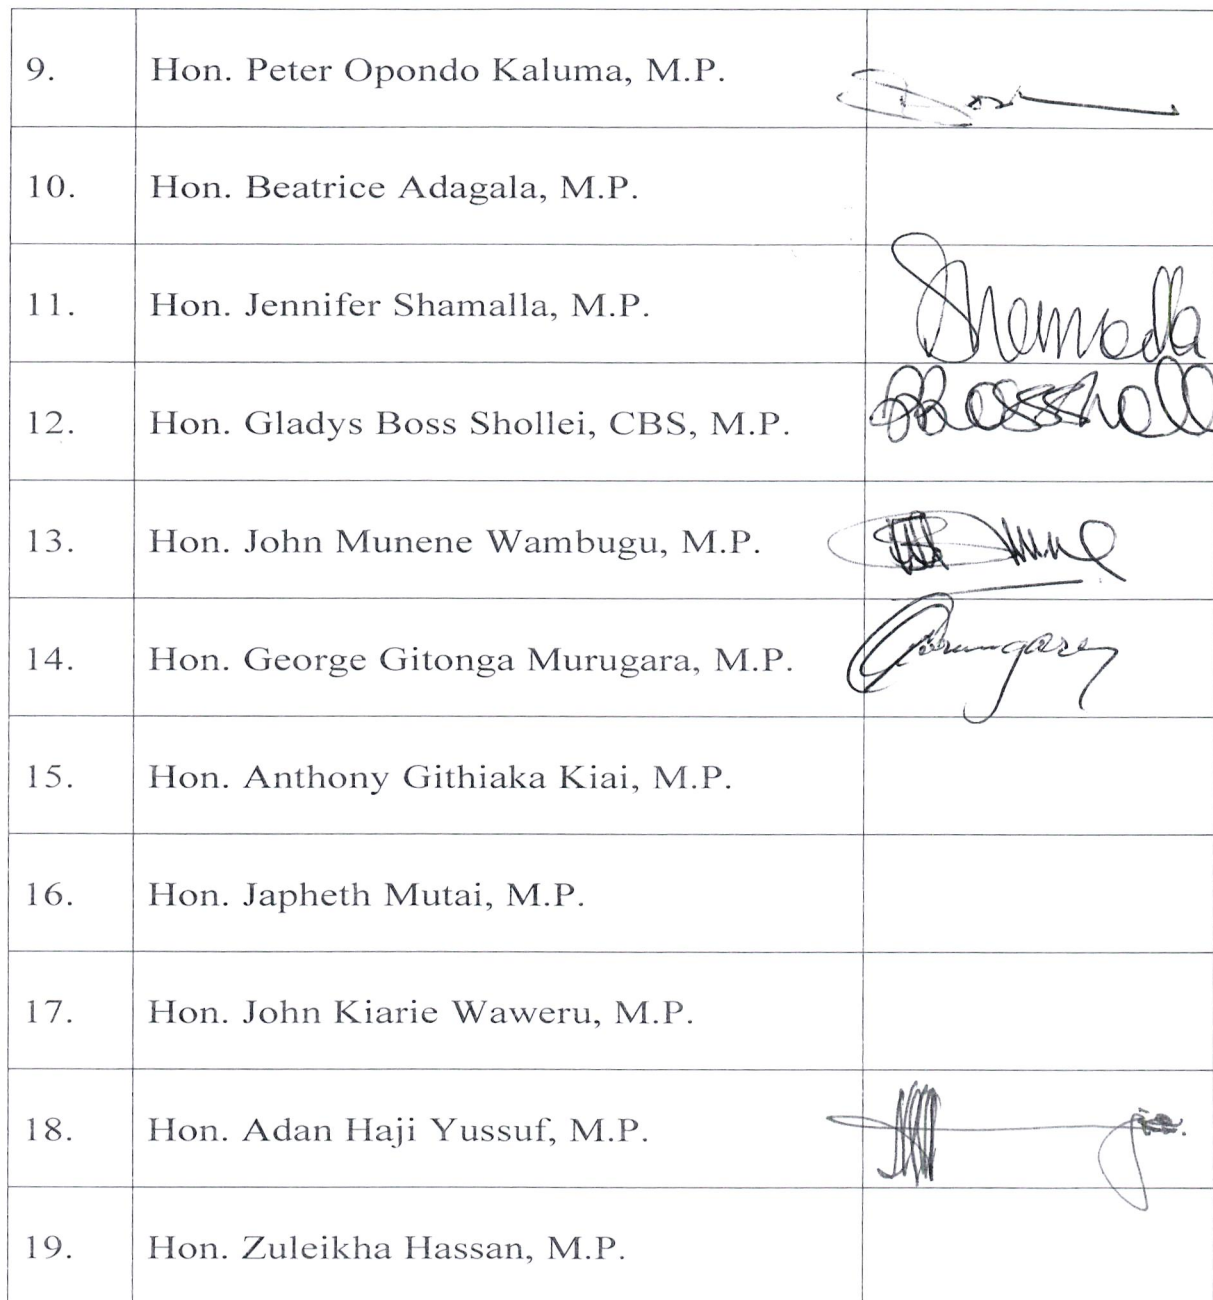 9. Hon. Peter Opondo Kaluma, M.P.
10. Hon. Beatrice Adagala, M.P.
11. Hon. Jennifer Shamalla, M.P. Shamalla
12. Hon. Gladys Boss Shollei, CBS, M.P.
13. Hon. John Munene Wambugu, M.P.
14. Hon. George Gitonga Murugara, M.P.
15. Hon. Anthony Githiaka Kiai, M.P.
16. Hon. Japheth Mutai, M.P.
17. Hon. John Kiarie Waweru, M.P.
18. Hon. Adan Haji Yussuf, M.P.
19. Hon. Zuleikha Hassan, M.P.